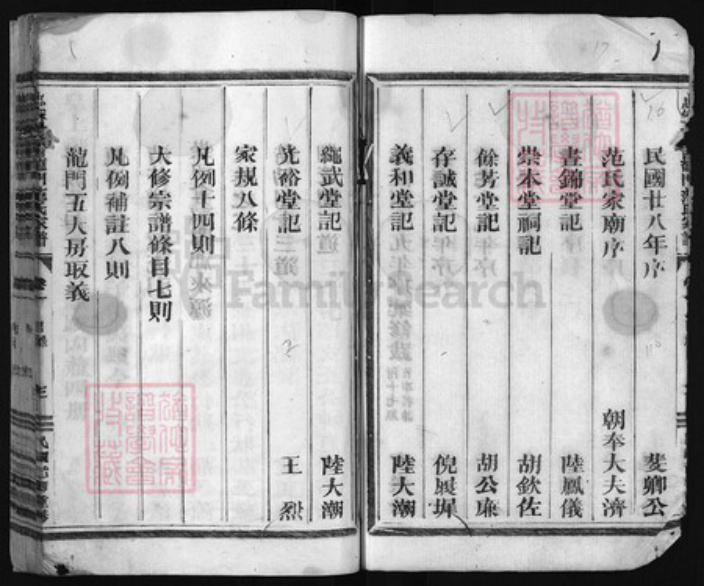 民國廿八年序 斐卿公
范氏家廟序 朝奉大夫濟
晝錦堂記 陸鳳儀
崇本堂祠記 胡欽佐
餘芳堂記 胡公廉
存誠堂記 倪展墀
義和堂記 陸大潮
繩武堂記 陸大潮
光裕堂記 王烈
家規八條
凡例十四則
大修宗譜條目七則
凡例補註八則
龍門五大房取義
FamilySearch